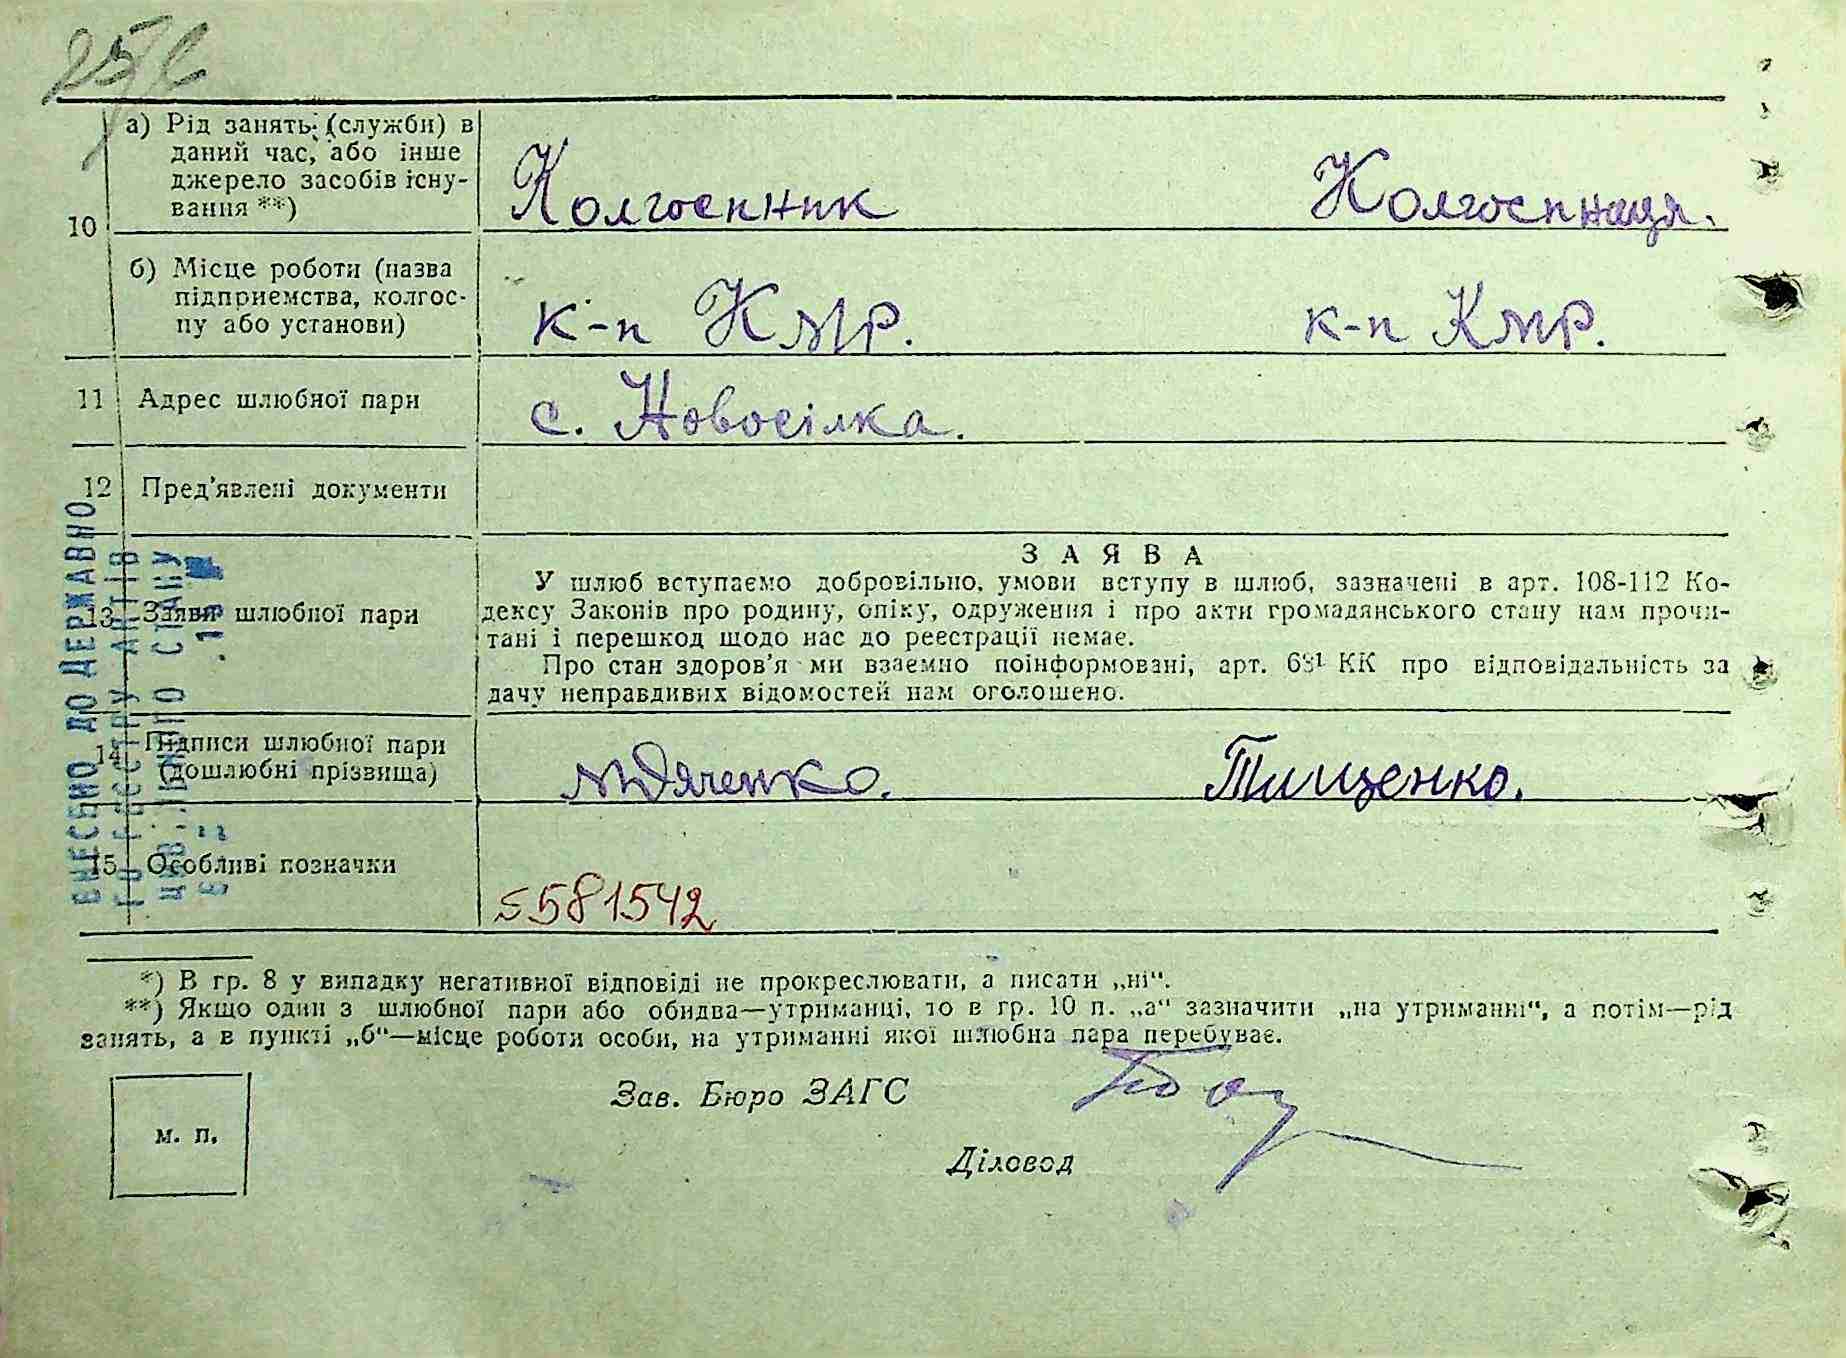 а) Рід занять (служби) в
даний час, або інше
джерело засобів існу-
вання **)
10
Колгоспник Колгоспниця.
б) Місце роботи (назва
підприємства, колгос-
пу або установи)
к-п КМР. к-п КМР.
11 Адрес шлюбної пари с. Новосілка.
12 Пред'явлені документи
ЗАЯВА
13 Заява шлюбної пари
У шлюб вступаємо добровільно, умови вступу в шлюб, зазначені в арт. 108-112 Ко-
дексу Законів про родину, опіку, одруження і про акти громадянського стану нам прочи-
тані і перешкод щодо нас до реєстрації немає.
Про стан здоров'я ми взаємно поінформовані, арт. 68¹ КК про відповідальність за
дачу неправдивих відомостей нам оголошено.
14 Підписи шлюбної пари
(дошлюбні прізвища)
Дяченко. Тищенко.
15 Особливі позначки
5581542
ВНЕСЕНО ДО ДЕРЖАВНО
ГО РЕЄСТРУ АКТІВ
ЦИВІЛЬНОГО СТАНУ
*) В гр. 8 у випадку негативної відповіді не прокреслювати, а писати „ні“.
**) Якщо один з шлюбної пари або обидва—утриманці, то в гр. 10 п. „а“ зазначити „на утриманні“, а потім—рід
занять, а в пункті „б“—місце роботи особи, на утриманні якої шлюбна пара перебуває.
Зав. Бюро ЗАГС
м. п.
Діловод